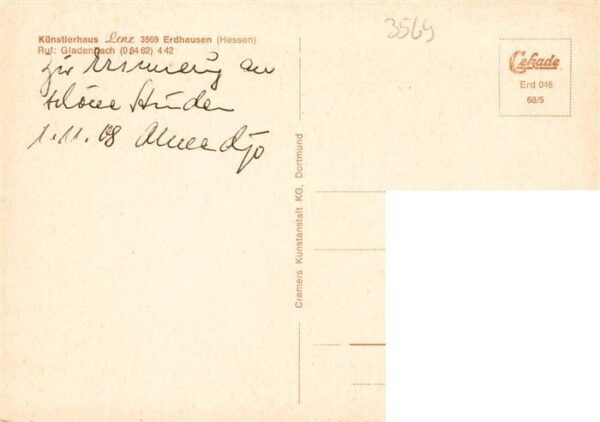 Künstlerhaus Lenz 3569 Erdhausen (Hessen)
Ruf: Gladenbach (0 64 62) 4 42
zur Erinnerung an
schöne Stunden
1.11.68
3569
Cekade
Erd 046
68/5
Cramers Kunstanstalt KG, Dortmund